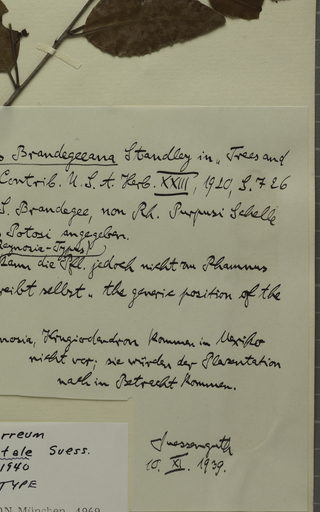 Brandegeeana Standley in „Trees and
Contrib. U. S. A. Herb. XXIII, 1920, S. 726
S. Brandegee, non Rh. Purpusi Schelle
Potosi angegeben.
kann die Pfl. jedoch nicht am Rhamnus
reibt selbst „ the generic position of the
nosia, Krugiodendron kommen in Mexiko
nicht vor; sie würden der Plazentation
nach in Betracht kommen.
Suessenguth
10. XI. 1939.
rreum
tale Suess.
1940
TYPE
N München, 1969